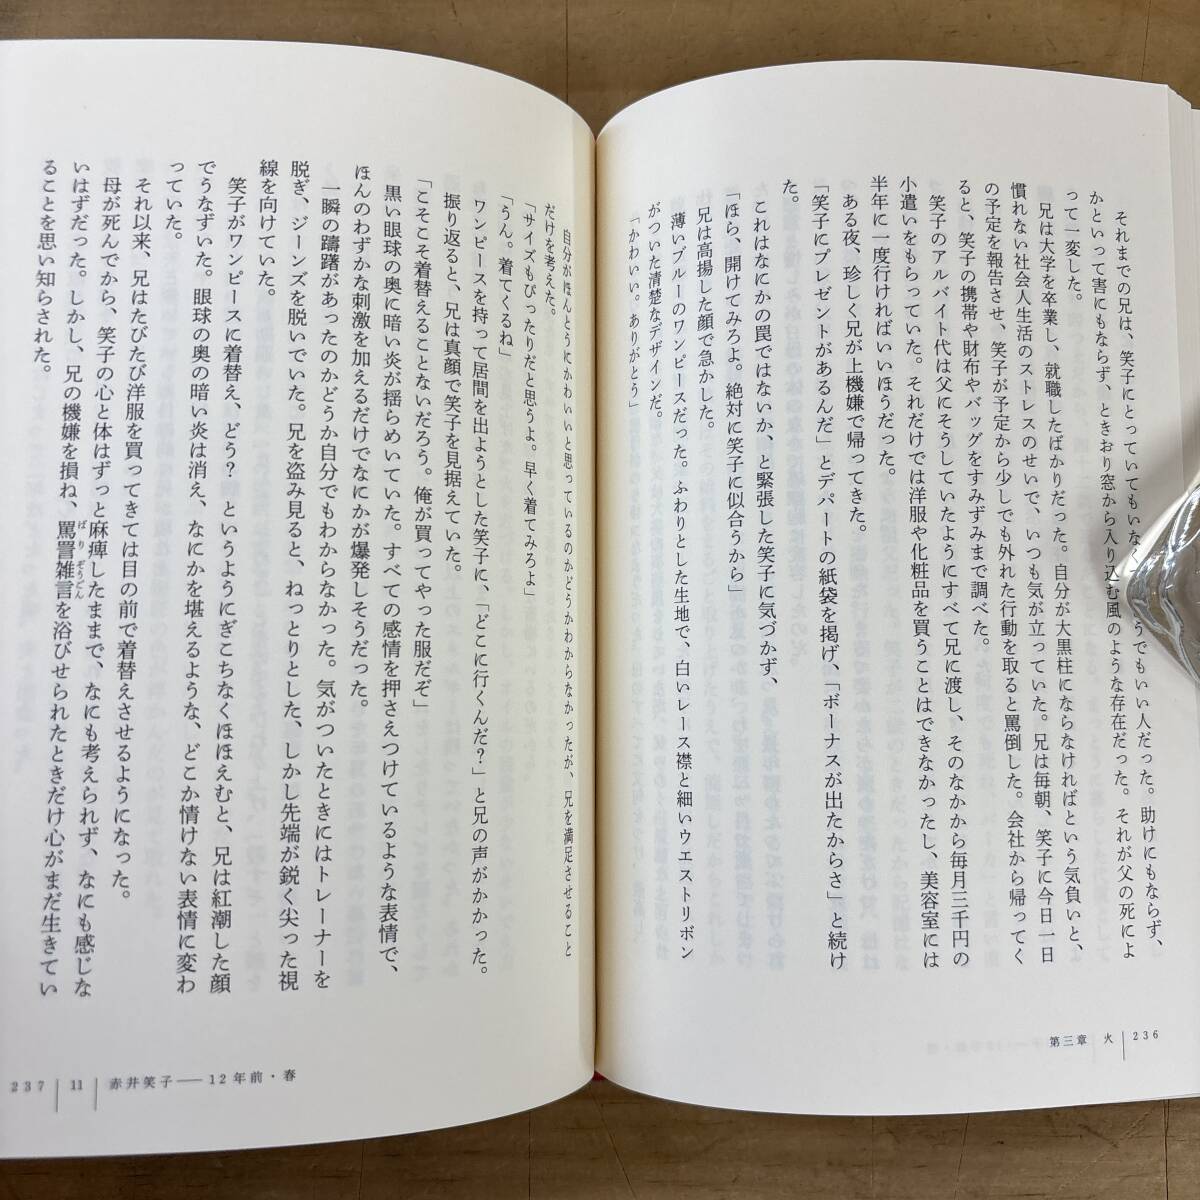 それまでの兄は、笑子にとっていてもいなく うでもいい人だった。助けにもならず、
かといって害にもならず、ときおり窓から入り込む風のような存在だった。それが父の死によ
って一変した。
兄は大学を卒業し、就職したばかりだった。自分が大黒柱にならなければという気負いと、
慣れない社会人生活のストレスのせいで、いつも気が立っていた。兄は毎朝、笑子に今日一日
の予定を報告させ、笑子が予定から少しでも外れた行動を取ると罵倒した。会社から帰ってく
ると、笑子の携帯や財布やバッグをすみずみまで調べた。
笑子のアルバイト代は父にそうしていたようにすべて兄に渡し、そのなかから毎月三千円の
小遣いをもらっていた。それだけでは洋服や化粧品を買うことはできなかったし、美容室には
半年に一度行ければいいほうだった。
ある夜、珍しく兄が上機嫌で帰ってきた。
「笑子にプレゼントがあるんだ」とデパートの紙袋を掲げ、「ボーナスが出たからさ」と続け
た。
これはなにかの罠ではないか、と緊張した笑子に気づかず、
「ほら、開けてみろよ。絶対に笑子に似合うから」
兄は高揚した顔で急かした。
薄いブルーのワンピースだった。ふわりとした生地で、白いレース襟と細いウエストリボン
がついた清楚なデザインだ。
「かわいい。ありがとう」
第三章 火 236
自分がほんとうにかわいいと思っているのかどうかわからなかったが、兄を満足させること
だけを考えた。
「サイズもぴったりだと思うよ。早く着てみろよ」
「うん。着てくるね」
ワンピースを持って居間を出ようとした笑子に、「どこに行くんだ?」と兄の声がかかった。
振り返ると、兄は真顔で笑子を見据えていた。
「こそこそ着替えることないだろう。俺が買ってやった服だぞ」
黒い眼球の奥に暗い炎が揺らめいていた。すべての感情を押さえつけているような表情で、
ほんのわずかな刺激を加えるだけでなにかが爆発しそうだった。
一瞬の躊躇があったのかどうか自分でもわからなかった。気がついたときにはトレーナーを
脱ぎ、ジーンズを脱いでいた。兄を盗み見ると、ねっとりとした、しかし先端が鋭く尖った視
線を向けていた。
笑子がワンピースに着替え、どう? というようにぎこちなくほほえむと、兄は紅潮した顔
でうなずいた。眼球の奥の暗い炎は消え、なにかを堪えるような、どこか情けない表情に変わ
っていた。
それ以来、兄はたびたび洋服を買ってきては目の前で着替えさせるようになった。
母が死んでから、笑子の心と体はずっと麻痺したままで、なにも考えられず、なにも感じな
いはずだった。しかし、兄の機嫌を損ね、罵詈雑言を浴びせられたときだけ心がまだ生きてい
ばりぞうごん
ることを思い知らされた。
237 11 赤井笑子――12年前・春